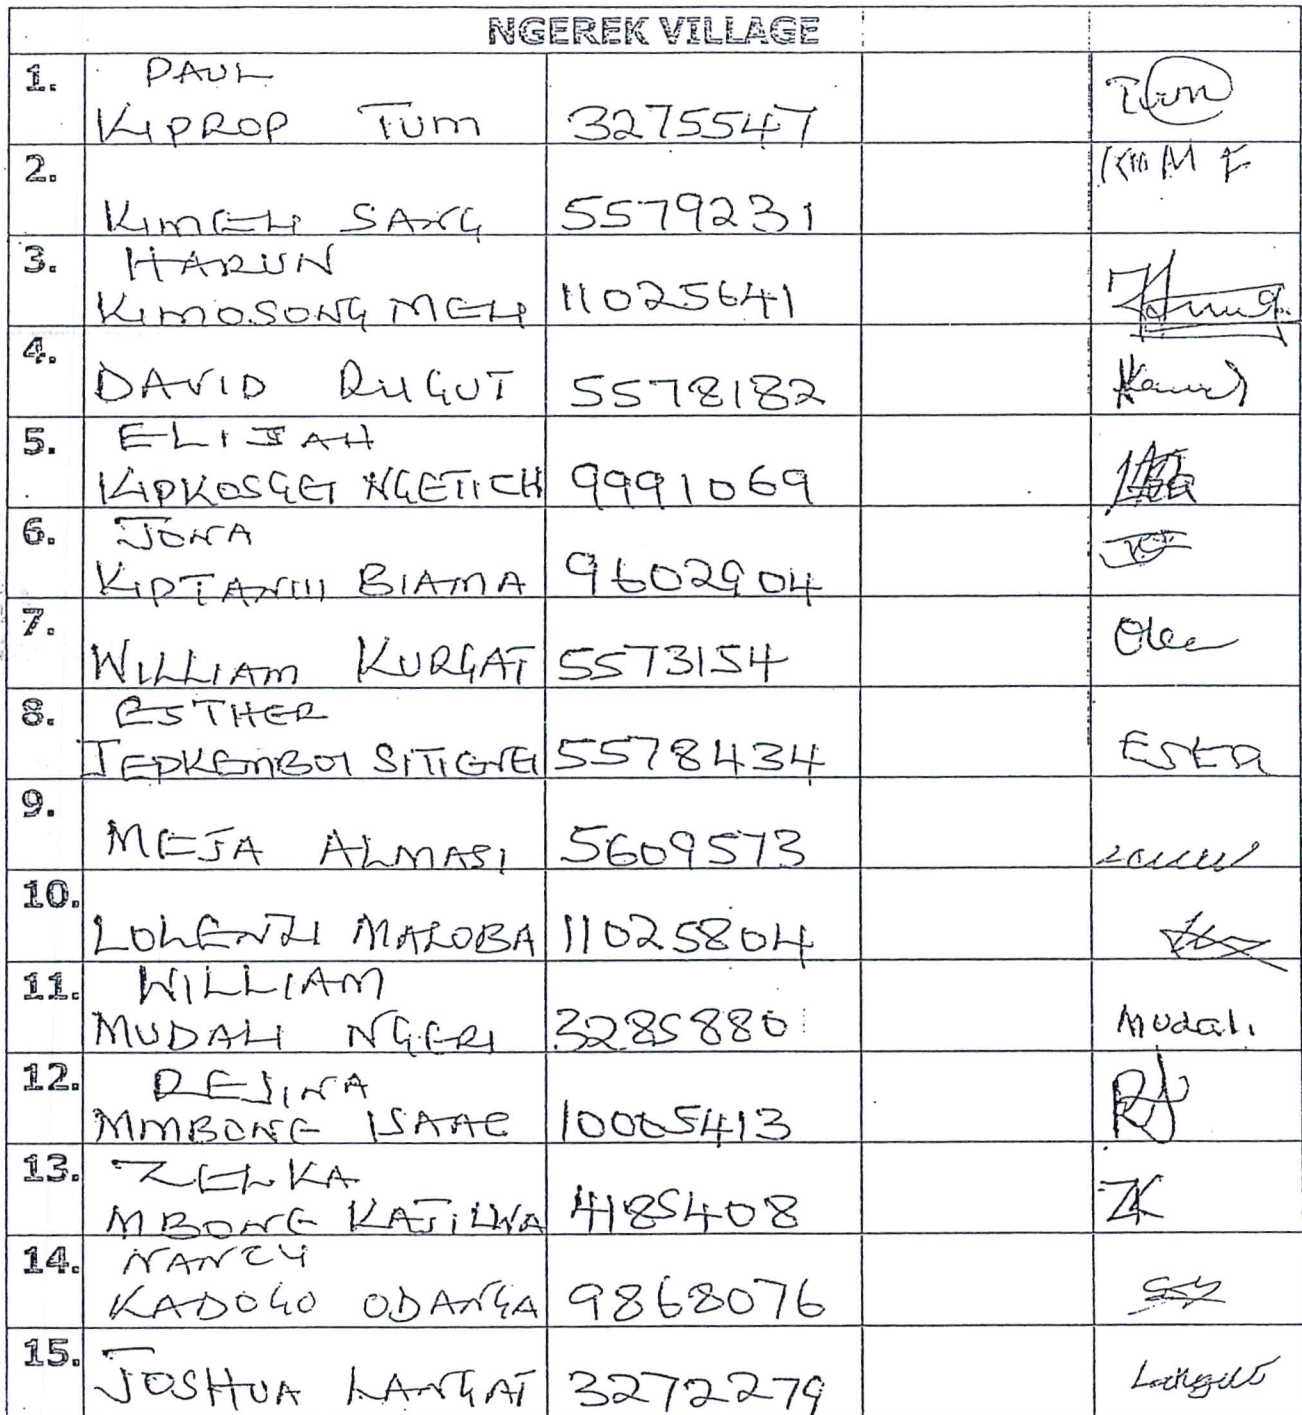 NGEREK VILLAGE
1. PAUL
KIPROP TUM 3275547 Tum
2.
KIMELI SANG 5579231
3. HARUN
KIMOSONG MELI 11025641
4.
DAVID RUGUT 5578182
5. ELIJAH
KIPKOSGEI NGETICH 9991069
6. JONA
KIPTANUI BIAMA 9602904
7.
WILLIAM KURGAT 5573154
8. ESTHER
JEPKEMBOI SITIENEI 5578434 ESTA
9.
MEJA ALMASI 5609573
10.
LOLENZI MALOBA 11025804
11. WILLIAM
MUDALI NGERI 3285880 Mudali
12. REJINA
MMBONE ISAAC 10005413 RJ
13. ZELKA
MBONE KAJILWA 4185408 ZK
14. NANCY
KADOGO ODANGA 9868076
15.
JOSHUA LANGAT 3272279